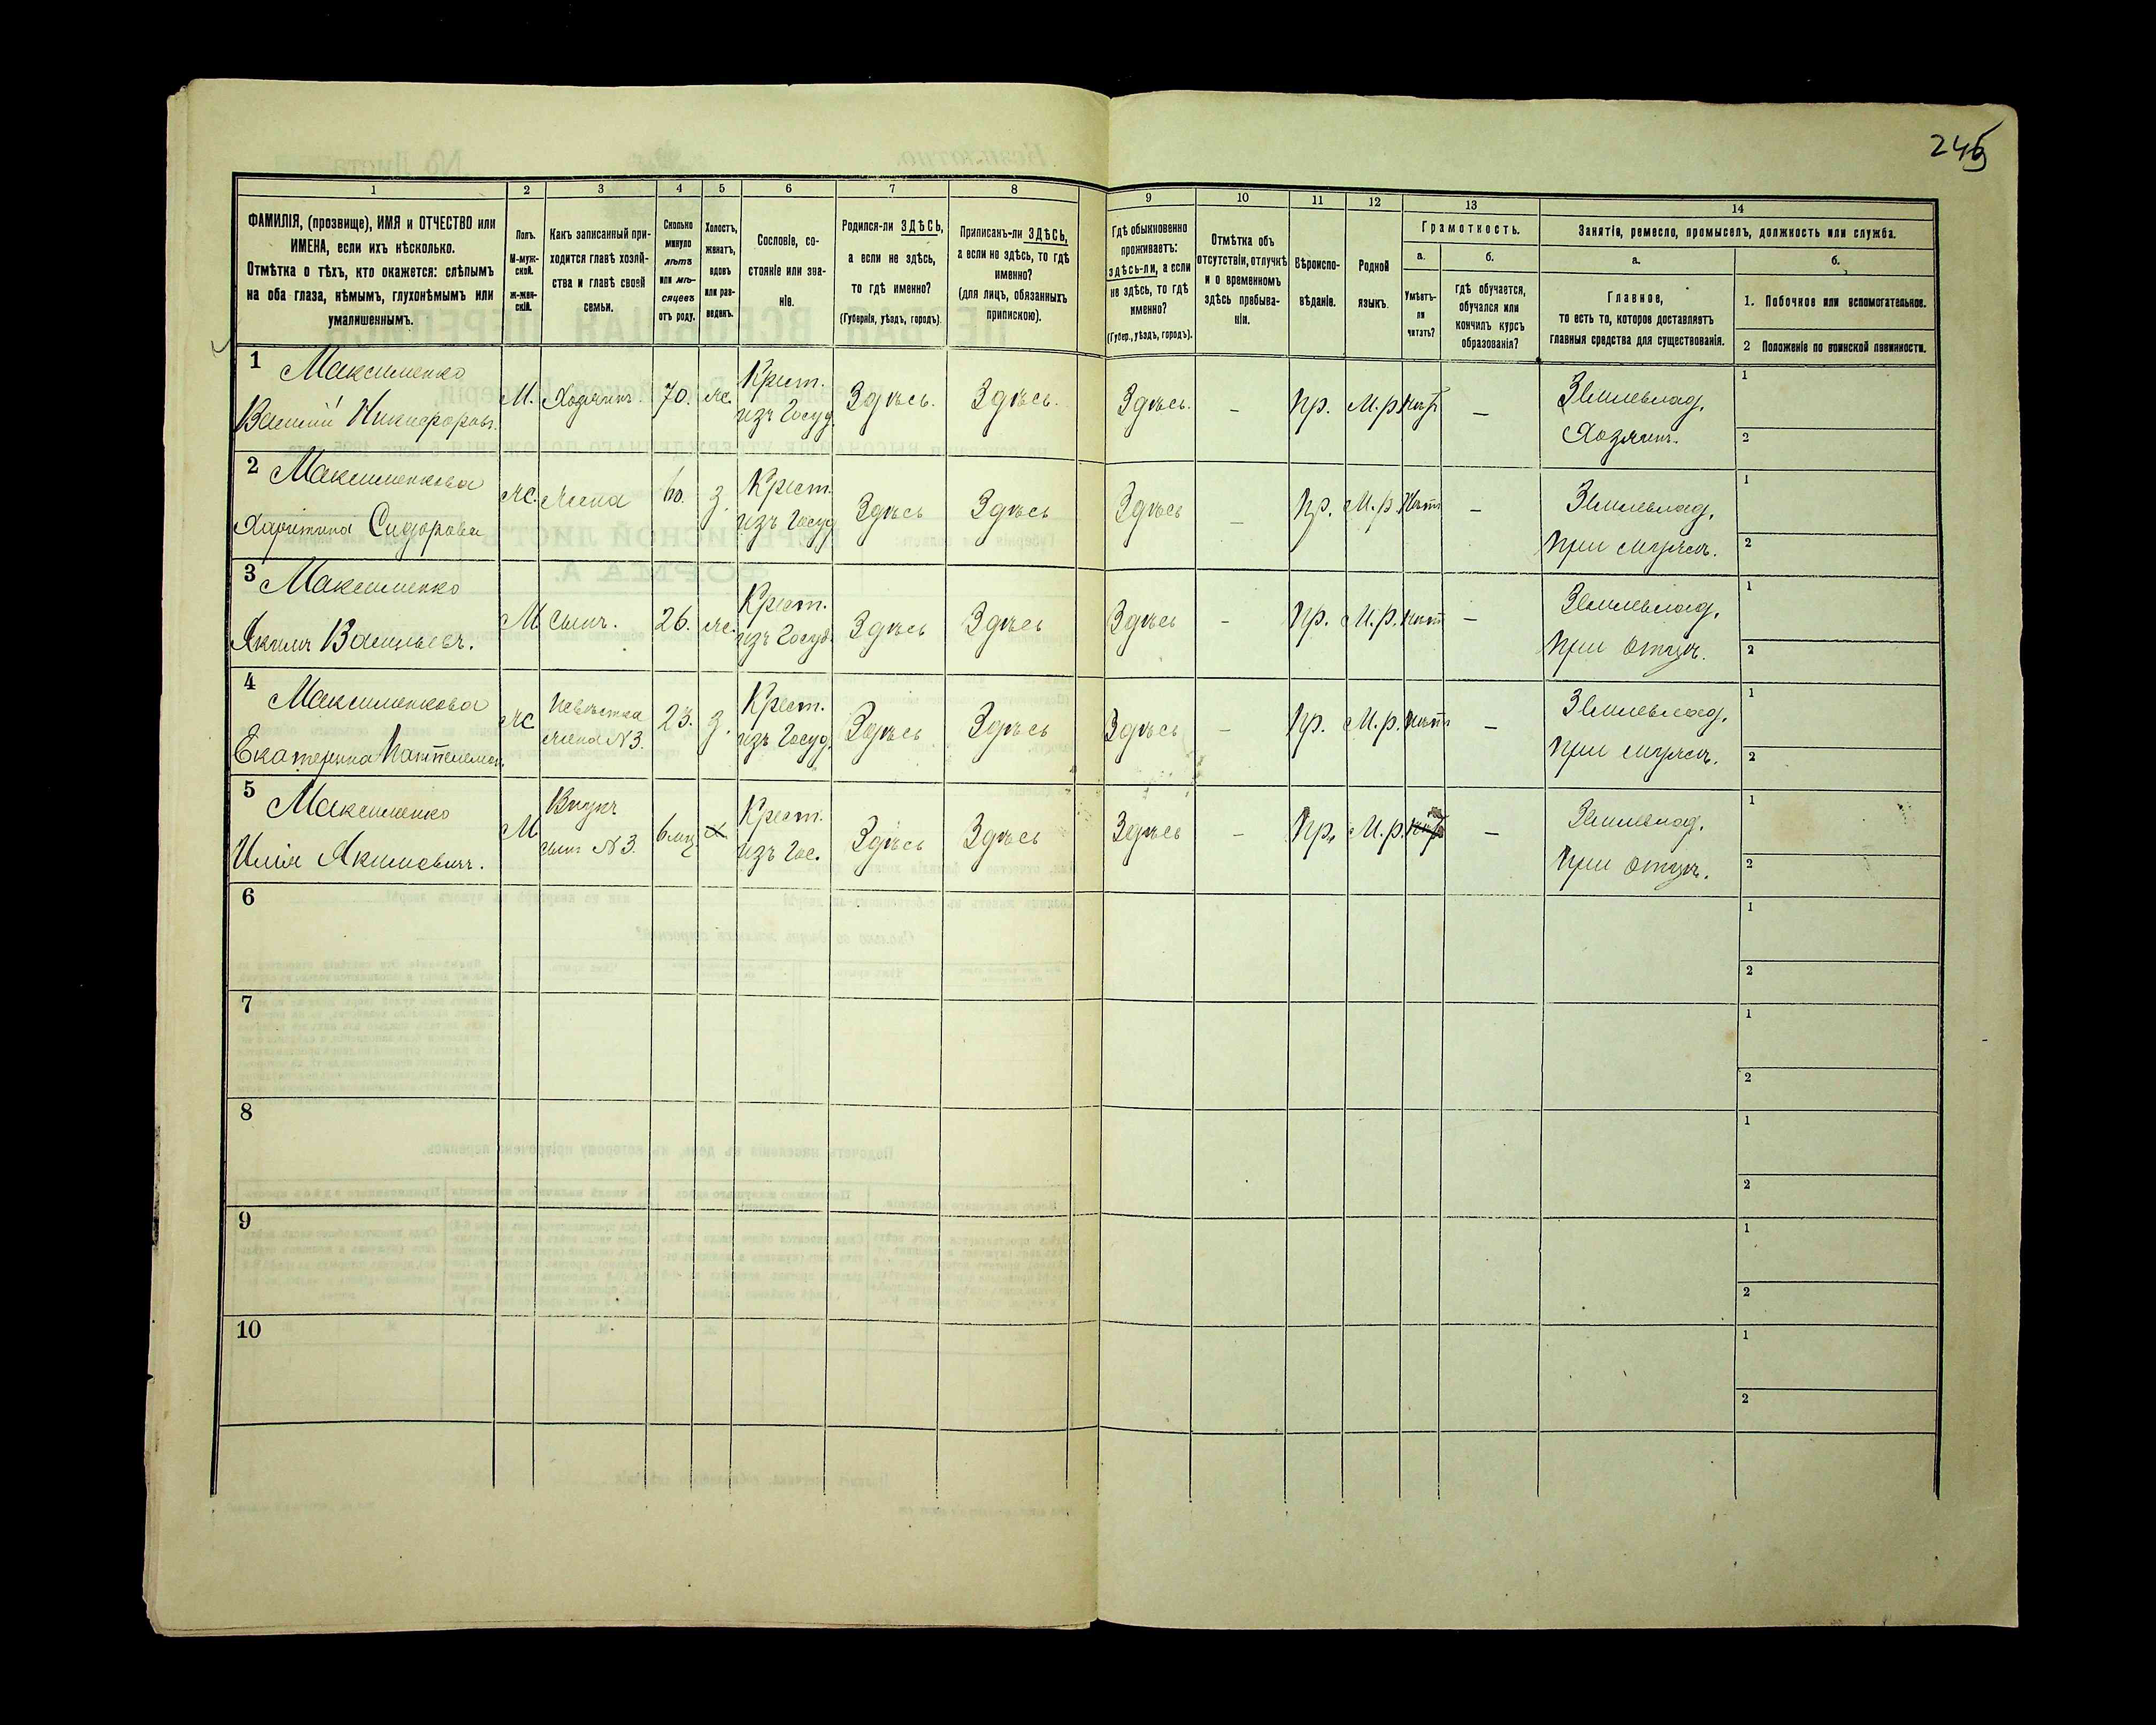 245
1
2
3
4
5
6
7
8
9
10
11
12
13
14
ФАМИЛІЯ, (прозвище), ИМЯ и ОТЧЕСТВО или
ИМЕНА, если ихъ нѣсколько.
Отмѣтка о тѣхъ, кто окажется: слѣпымъ
на оба глаза, нѣмымъ, глухонѣмымъ или
умалишеннымъ.
Полъ.
М-муж-
ской.
Ж-жен-
скій.
Какъ записанный при-
ходится главѣ хозяй-
ства и главѣ своей
семьи.
Сколько
минуло
лѣтъ
или мѣ-
сяцевъ
отъ роду.
Холостъ,
женатъ,
вдовъ
или раз-
веденъ.
Сословіе, со-
стояніе или зва-
ніе.
Родился-ли ЗДѢСЬ,
а если не здѣсь,
то гдѣ именно?
(Губернія, уѣздъ, городъ).
Приписанъ-ли ЗДѢСЬ,
а если не здѣсь, то гдѣ
именно?
(для лицъ, обязанныхъ
припискою).
Гдѣ обыкновенно
проживаетъ:
здѣсь-ли, а если
не здѣсь, то гдѣ
именно?
(Губер., уѣздъ, городъ).
Отмѣтка объ
отсутствіи, отлучкѣ
и о временномъ
здѣсь пребыва-
ніи.
Вѣроиспо-
вѣданіе.
Родной
языкъ.
Грамотность.
а.
Умѣетъ-
ли
читать?
б.
гдѣ обучается,
обучался или
кончилъ курсъ
образованія?
Занятіе, ремесло, промыселъ, должность или служба.
а.
Главное,
то есть то, которое доставляетъ
главныя средства для существованія.
б.
1. Побочное или вспомогательное.
2 Положеніе по воинской повинности.
1 Максименко
Василій Никифоровъ.
М. Хозяинъ. 70. ж. Крест.
изъ Госуд. Здѣсь. Здѣсь. Здѣсь. – Пр. М.р. Нѣт –
Землевлад.
Хозяинъ.
1
2
2 Максименкова
Харитина Сидорова
Ж. Жена 60. З. Крест.
изъ Госуд Здѣсь Здѣсь Здѣсь – Пр. М.р. Нѣт –
Землевлад.
При мужѣ.
1
2
3 Максименко
Якимъ Васильевъ.
М Сынъ. 26. ж. Крест.
изъ Госуд. Здѣсь Здѣсь Здѣсь – Пр. М.р. Нѣт –
Землевлад.
При отцѣ.
1
2
4 Максименкова
Екатерина
Ж Невѣстка
жена N3. 23. З. Крест.
изъ Госуд. Здѣсь Здѣсь Здѣсь – Пр. М.р. Нѣт –
Землевлад.
При мужѣ.
1
2
5 Максименко
Илія Якимовичъ.
М Внукъ
сынъ N3. 6 мц х Крест.
изъ Гос. Здѣсь Здѣсь Здѣсь – Пр. М.р. –
Землевлад.
При отцѣ.
1
2
6
1
2
7
1
2
8
1
2
9
1
2
10
1
2